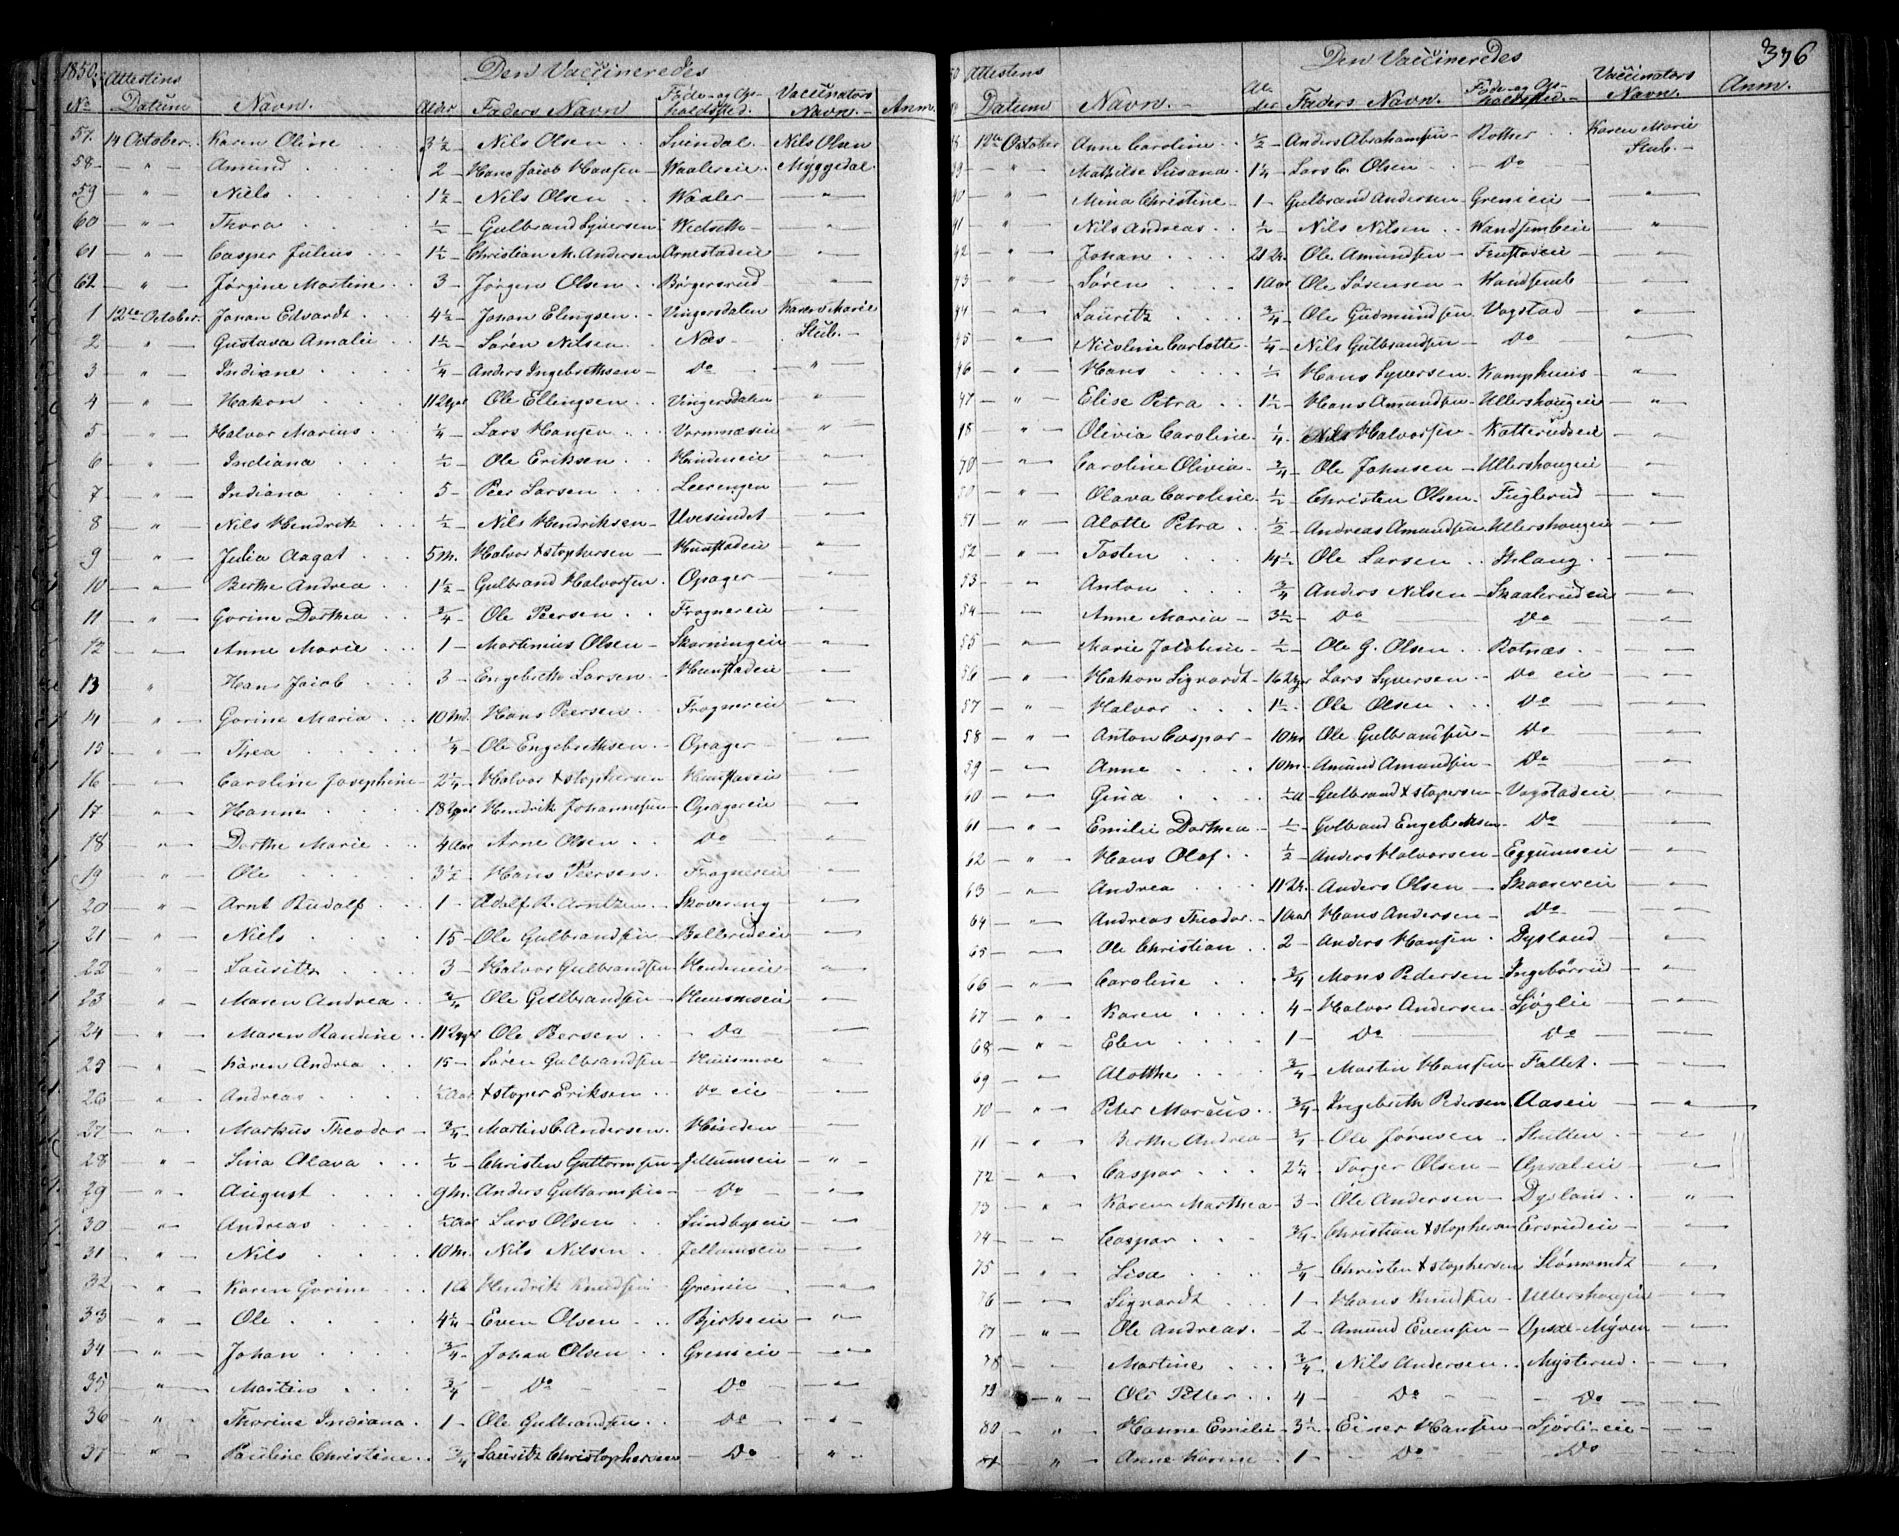 1850. Attestens Den Vaccineredes
No Datum Navn. Alder Faders Navn Føde- og Opholdsted. Vaccinators Navn. Anm.
57. 14 October. Karen Olivie 3½ Nils Olsen Svindal Nils Olsen
58 — " — Amund 2 Hans Jacob Hansen Waalereie Myggedal
59 " Niels 1½ Nils Olsen Waaler — " —
60 — " — Thora ½ Gulbrand Syversen Wietseth — " —
61 — " — Casper Julius 1½ Christian M. Andersen Arnestadeie — " —
62 — " — Jørgine Martine 3 Jørgen Olsen Børgersrud — " —
1 12te October. Johan Edvardt 4½ Johan Elingsen Vingersdalen Karen Marie
2 — " — Gustava Amalie 1½ Søren Nilsen Næs Stub. —
3 " Indiane ¼ Anders Ingebrethsen Do — " —
4 — " — Hakon 11 Uger Ole Ellingsen Vingersdalen — " —
5 " Halvor Marius ¼ Lars Hansen Vormnæseie — " —
6 — " — Indiana ½ Ole Eriksen Hindeneie — " —
7 — " — Indiana 5 Peer Larsen Leerengen — " —
8 — " — Nils Hendrik ½ Nils Hendriksen Uvesundet — " —
9 " Julia Aagat 5 M. Halvor Xstophersen Haustadeie — " —
10 — " — Berthe Andrea 1½ Gulbrand Halvorsen Opager — " —
11 — " — Gorine Dorthea ¾ Ole Peersen Frognereie — " —
12 — " — Anne Marie 1 Martinius Olsen Skarningeie — " —
13 " Hans Jacob 3 Engebreth Larsen — " —
14 — " — Gorine Maria 10 Md. Hans Peersen Frognereie — " —
15 — " — Thea ¼ Ole Engebrethsen Opager — " —
16 — " — Caroline Josephine 2¼ Halvor Xstophersen — " —
17 — " — Hanne 18 Uger Hendrik Johannesen Opagereie — " —
18 — " — Dorthe Marie 4 Aar Arne Olsen Do — " —
19 — " — Ole 3½ Hans Peersen Frognereie — " —
20 — " — Arnt Rudolf 1 Adolf R. Arntzen Skovereng — " —
21 — " — Niels 15 Ole Gulbrandsen Ballerudeie — " —
22 — " — Lauritz 3 Halvor Gulbrandsen Hindeneie — " —
23 — " — Maren Andrea ¾ Ole Gulbrandsen Huusmoeie — " —
24 — " — Maren Randine 11 Uger Ole Peersen Do — " —
25 — " — Karen Andrea 15 Søren Gulbrandsen Huusmoe "
26 — " — Andreas ½ Aar Xstoper Eriksen Do eie — " —
27 — " — Markus Theodor ¾ Martin C. Andersen Hinden — " —
28 — " — Lina Olava ½ Christen Guttormsen Jellumseie — " —
29 — " — August 9 M. Anders Guttormsen Do — " —
30 — " — Andreas ½ Aar Lars Olsen Sundbyeie — " —
31 — " — Nils 10 M. Nils Nilsen Jellumseie — " —
32 — " — Karen Gorine 1 A Hendrik Knudsen Greneie — " —
33 — " — Ole 4¼ Even Olsen Bjerkeeie — " —
34 — " — Johan ¾ Johan Olsen Grenseie — " —
35 — " — Martin ¾ Do Do — " —
36 — " — Thorine Indiana 1 Ole Gulbrandsen Do — " —
37 — " — Pauline Christine ¾ Lauritz Christophersen Do "
376
50 Attestens Den Vaccineredes
Datum Navn. Alder Faders Navn. Føde- og Opholdsted. Vaccinators Navn. Anm.
38 12te October Anne Caroline ½ Anders Abrahamsen Rother Karen Marie
39 — " — Mathilde Susana 1¼ Lars C. Olsen Do Stub. —
40 — " — Mina Christine 1 Gulbrand Andersen Greneeie "
41 — " — Nils Andreas ½ Nils Nilsen Wandsembeie — " —
42 — " — Johan 21 Uk. Ole Amundsen — " —
43 — " — Søren 1 Aar Ole Sørensen Wandsemb — " —
44 — " — Lauritz ¾ Ole Gudmundsen Vogstad — " —
45 — " — Nicoline Carlotte ¼ Nils Gulbrandsen Do — " —
46 — " — Hans ½ Hans Syversen Kamphuus — " —
47 — " — Elise Petra 1½ Hans Amundsen Ullershougeie — " —
48 — " — Olivia Caroline ¼ Nils Halvorsen Katterudseie — " —
Caroline Olivia ¾ Ole Johnsen Ullershougeie — " —
50 — " — Olava Caroline ½ Christen Olsen Fuglerud — " —
51 — " — Alotte Petra ½ Andreas Amundsen Ullershougeie — " —
52 — " — Tosten 4½ Ole Larsen — " —
53 — " — Anton ¾ Anders Nilsen Skaalerudeie — " —
54 — " — Anne Maria 3½ Do Do "
55 — " — Marie Jacobine ½ Ole G. Olsen Rotnæs — " —
56 — " — Hakon Sigvardt 16 Uger Lars Syversen Do eie — " —
57 — " — Halvor 1½ Ole Olsen Do — " —
58 — " — Anton Caspar 10 M Ole Gulbrandsen Do — " —
59 — " — Anne 10 M. Amund Amundsen Do — " —
60 — " — Gina ½ A Gulbrand Xstopersen Vogstadeie — " —
61 — " — Emilie Dorthea ½ Golbrand Engebretsen Do — " —
62 — " — Hans Olaf ½ Anders Halvorsen Eggumseie — " —
63 — " — Andrea 11 Uk. Anders Olsen Skaarereie — " —
64 — " — Andreas Theodor 1 Aar Hans Andersen Do — " —
65 — " — Ole Christian 2 Anders Hansen Dysland — " —
66 — " — Caroline ¾ Mons Pedersen Ingebørrud — " —
67 — " — Karen 4 Halvor Andersen Sjøglie — " —
68 — " — Elen 1 Do Do — " —
69 — " — Alotthe ¾ Morten Hansen Fallet — " —
70 — " — Peter Marcus ¾ Ingebreth Pedersen Aaseie — " —
71 " Berthe Andrea ¾ Ole Jørnsen Slutten — " —
72 — " — Caspar 2¼ Torger Olsen Opsaleie — " —
73 — " — Karen Marthea 3 Ole Andersen Dysland "
74 — " — Caspar ¾ Christian Xstophersen Ersrudeie — " —
75 — " — Lisa ¾ Christen Xstophersen Slomundt — " —
76 — " — Sigvardt 1 Hans Knudsen Ullershougeie — " —
77 — " — Ole Andreas 2 Amund Evensen Opsal-Myren — " —
78 — " — Martine ¾ Nils Andersen Mysterud — " —
79 — " — Ole Petter 4 Do Do — " —
80 " Hanne Emilie 3½ Einer Hansen Sjørlieeie — " —
81 — " — Anne Karine 1 Do Do — " —